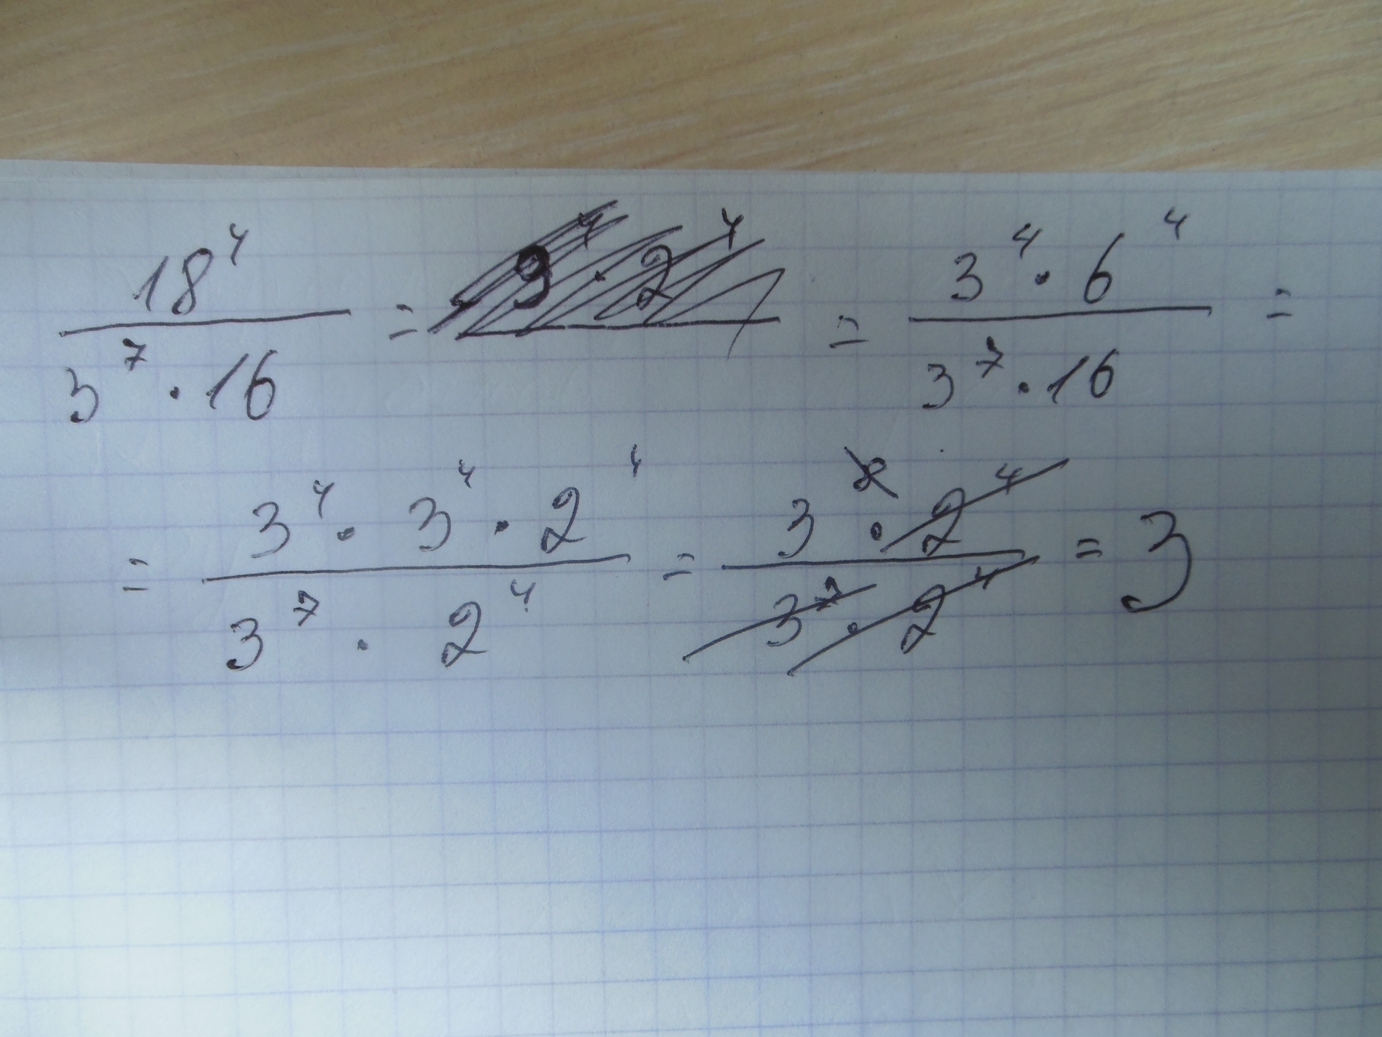 18⁴ / (3⁷ · 16) = 9⁴ · 2⁴ = (3⁴ · 6⁴) / (3⁷ · 16) =
= (3⁴ · 3⁴ · 2⁴) / (3⁷ · 2⁴) = (3⁸ · 2⁴) / (3⁷ · 2⁴) = 3